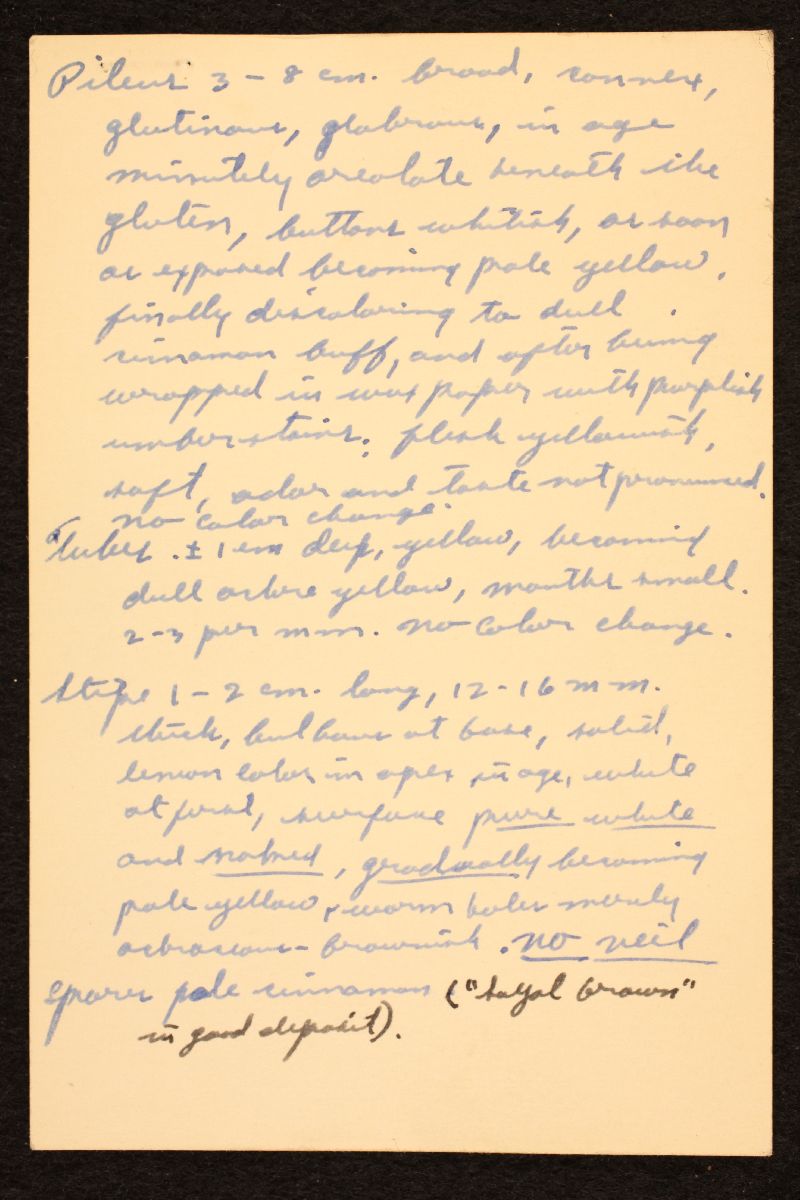 Pileus 3 - 8 cm. broad, convex,
glutinous, glabrous, in age
minutely areolate beneath the
gluten, buttons whitish, as soon
as exposed becoming pale yellow,
finally discoloring to dull
cinnamon buff, and after being
wrapped in wax paper with purplish
umber stains; flesh yellowish,
soft, odor and taste not pronounced.
no color change.
Tubes ± 1 cm deep, yellow, becoming
dull ochre yellow, mouths small.
2-3 per mm. no color change.
Stipe 1 - 2 cm. long, 12-16 mm.
thick, bulbous at base, solid,
lemon color in apex in age, white
at first, surface pure white
and naked, gradually becoming
pale yellow, worm holes merely
ochraceous-brownish. no veil
Spores pale cinnamon ("sayal brown"
in good deposit).